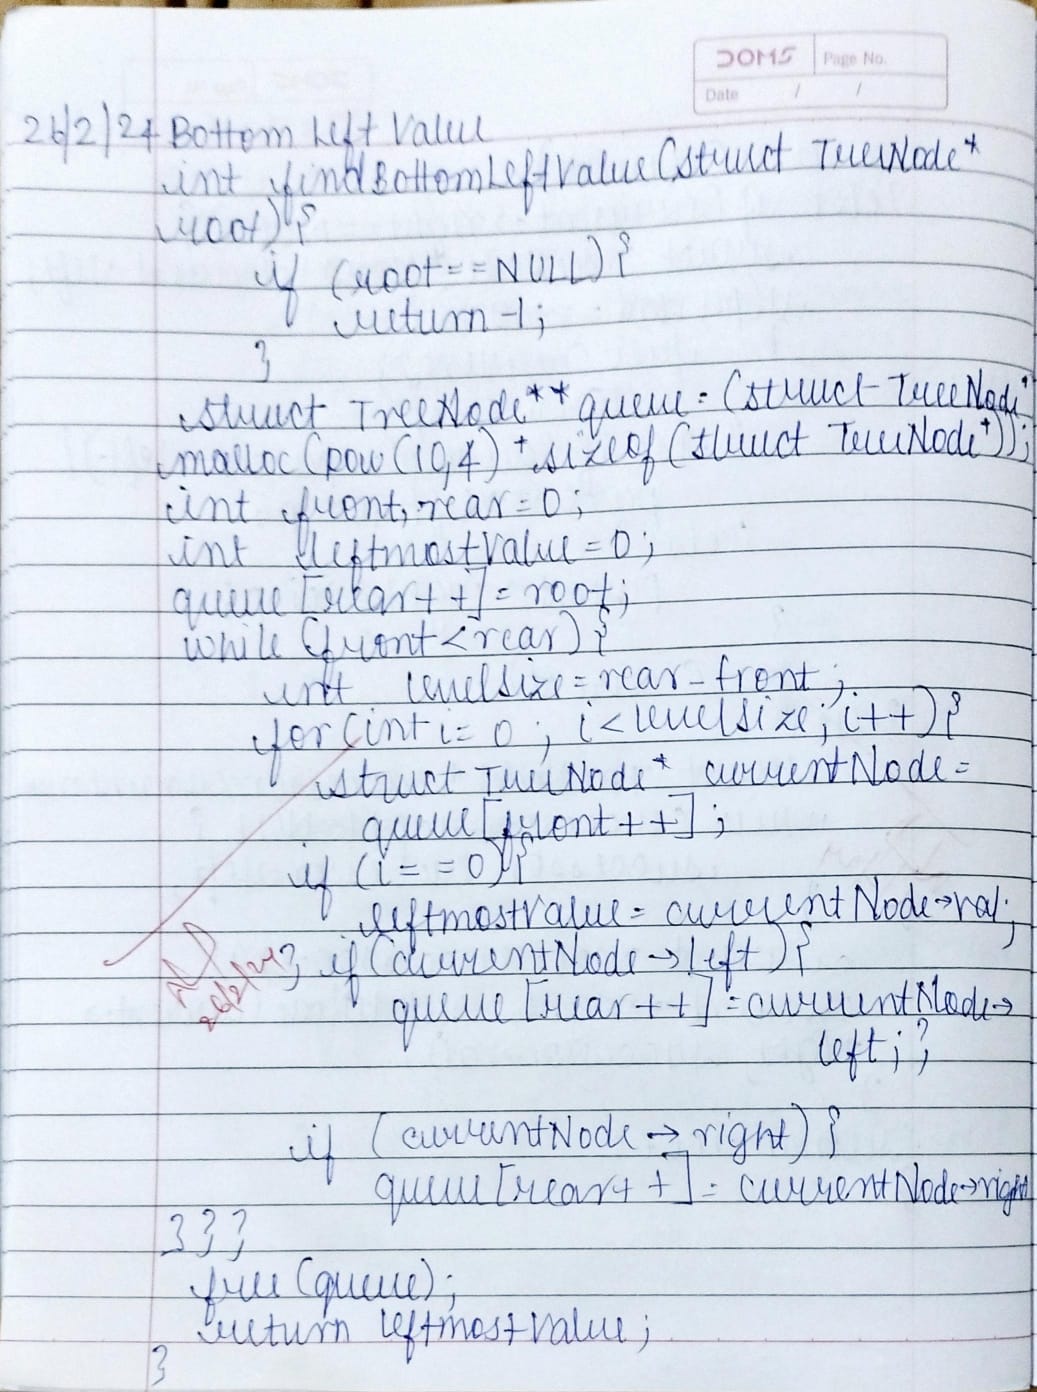 DOMS Page No.
Date / /
26/2/24 Bottom Left Value
int findBottomLeftValue(struct TreeNode*
root){
if (root==NULL){
return -1;
}
struct TreeNode** queue = (struct TreeNode*
malloc(pow(10,4)*sizeof(struct TreeNode*));
int front, rear=0;
int leftmostValue=0;
queue[rear++]=root;
while(front<rear){
int levelsize=rear-front;
for(int i=0; i<levelsize; i++){
struct TreeNode* currentNode=
queue[front++];
if (i==0){
leftmostValue=currentNode→val;
} if(currentNode→left){
queue[rear++]=currentNode→
left;}
if (currentNode→right){
queue[rear++]=currentNode→right
}}}
free(queue);
return leftmostValue;
}